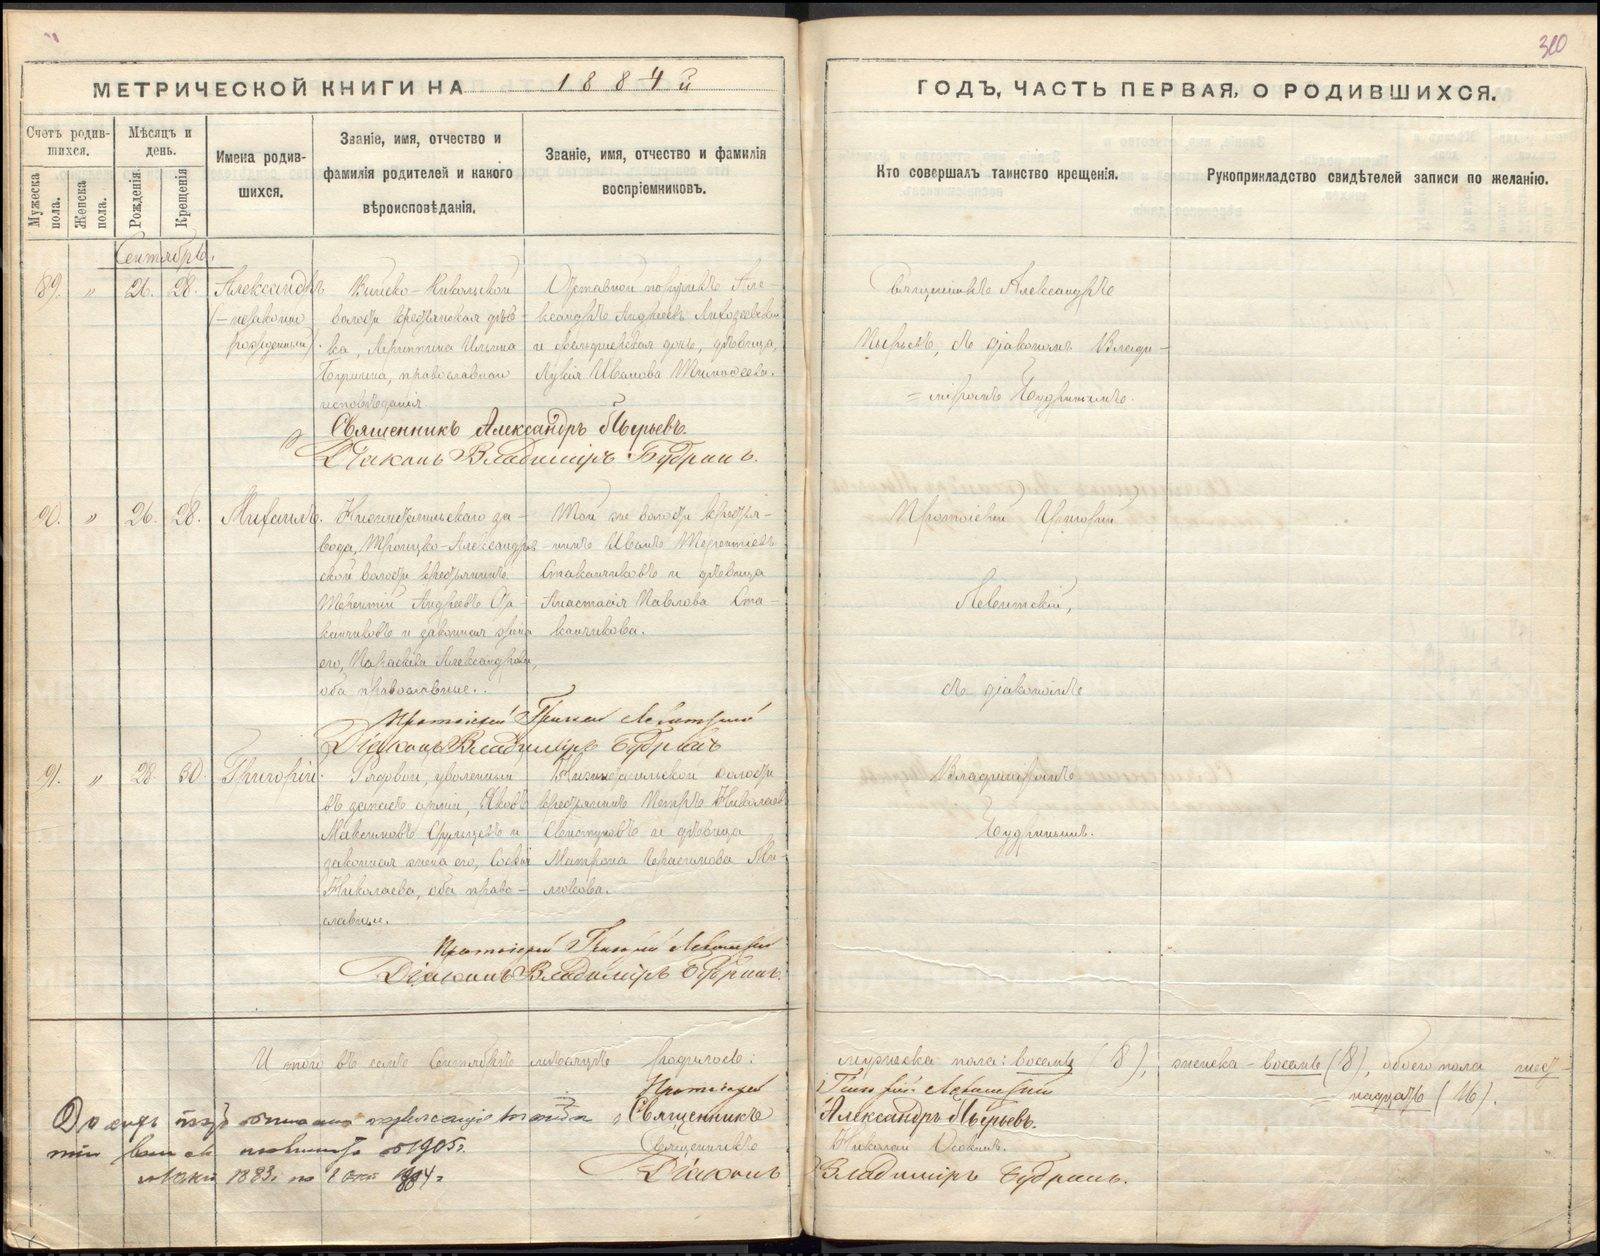 310
МЕТРИЧЕСКОЙ КНИГИ НА 1884й
ГОДЪ, ЧАСТЬ ПЕРВАЯ, О РОДИВШИХСЯ.
Счетъ родив-
шихся.
Мужеска
пола.
Женска
пола.
Мѣсяцъ и
день.
Рожденія.
Крещенія
Имена родив-
шихся.
Званіе, имя, отчество и
фамилія родителей и какого
вѣроисповѣданія.
Званіе, имя, отчество и фамилія
воспріемниковъ.
Кто совершалъ таинство крещенія.
Рукоприкладство свидѣтелей записи по желанію.
Сентябрь.
89. " 26. 28.
Александръ
(незаконно
рожденный).
волости крестьянская дѣв-
ка, Ильина
православнаго
исповѣданія.
Отставной Але-
ксандръ Андреевъ
и дочь, дѣвица,
Иванова Тимофеева.
Священникъ Александръ
Пырьевъ, съ діакономъ Влади-
міромъ Будринымъ.
Священникъ Александръ Пырьевъ.
Діаконъ Владиміръ Будринъ.
90. " 26. 28.
Михаилъ.
Нижнетагильскаго за-
вода, Троицко-Александров
ской волости крестьянинъ
Терентій Андреевъ Ста
канчиковъ и законная жена
его, Параскева Александрова,
оба православные.
Той же волости крестья-
нинъ Иванъ Терентіевъ
Стаканчиковъ и дѣвица
Анастасія Павлова Ста-
канчикова.
Протоіерей Григорій
Левитскій,
съ діакономъ
Владиміромъ
Будринымъ.
Протоіерей Григорій Левитскій
Діаконъ Владиміръ Будринъ
91. " 28. 30.
Григорій.
Рядовой, уволенный
въ запасъ арміи, Яковъ
Максимовъ и
законная жена его, Софія
Николаева, оба право-
славные.
Нижнетагильской волости
крестьянинъ Петръ Николаевъ
Свистуновъ и дѣвица
Матрона Герасимова Ми-
люкова.
Протоіерей Григорій Левитскій
Діаконъ Владиміръ Будринъ.
И того въ семъ Сентябрѣ мѣсяцѣ родилось:
мужеска пола: восемь (8),
женска - восемь (8), обоего пола шест-
надцать (16).
Протоіерей Григорій Левитскій
Священникъ Александръ Пырьевъ.
Священникъ Николай
Діаконъ Владиміръ Будринъ.
1905г.
1883г. по 1884г